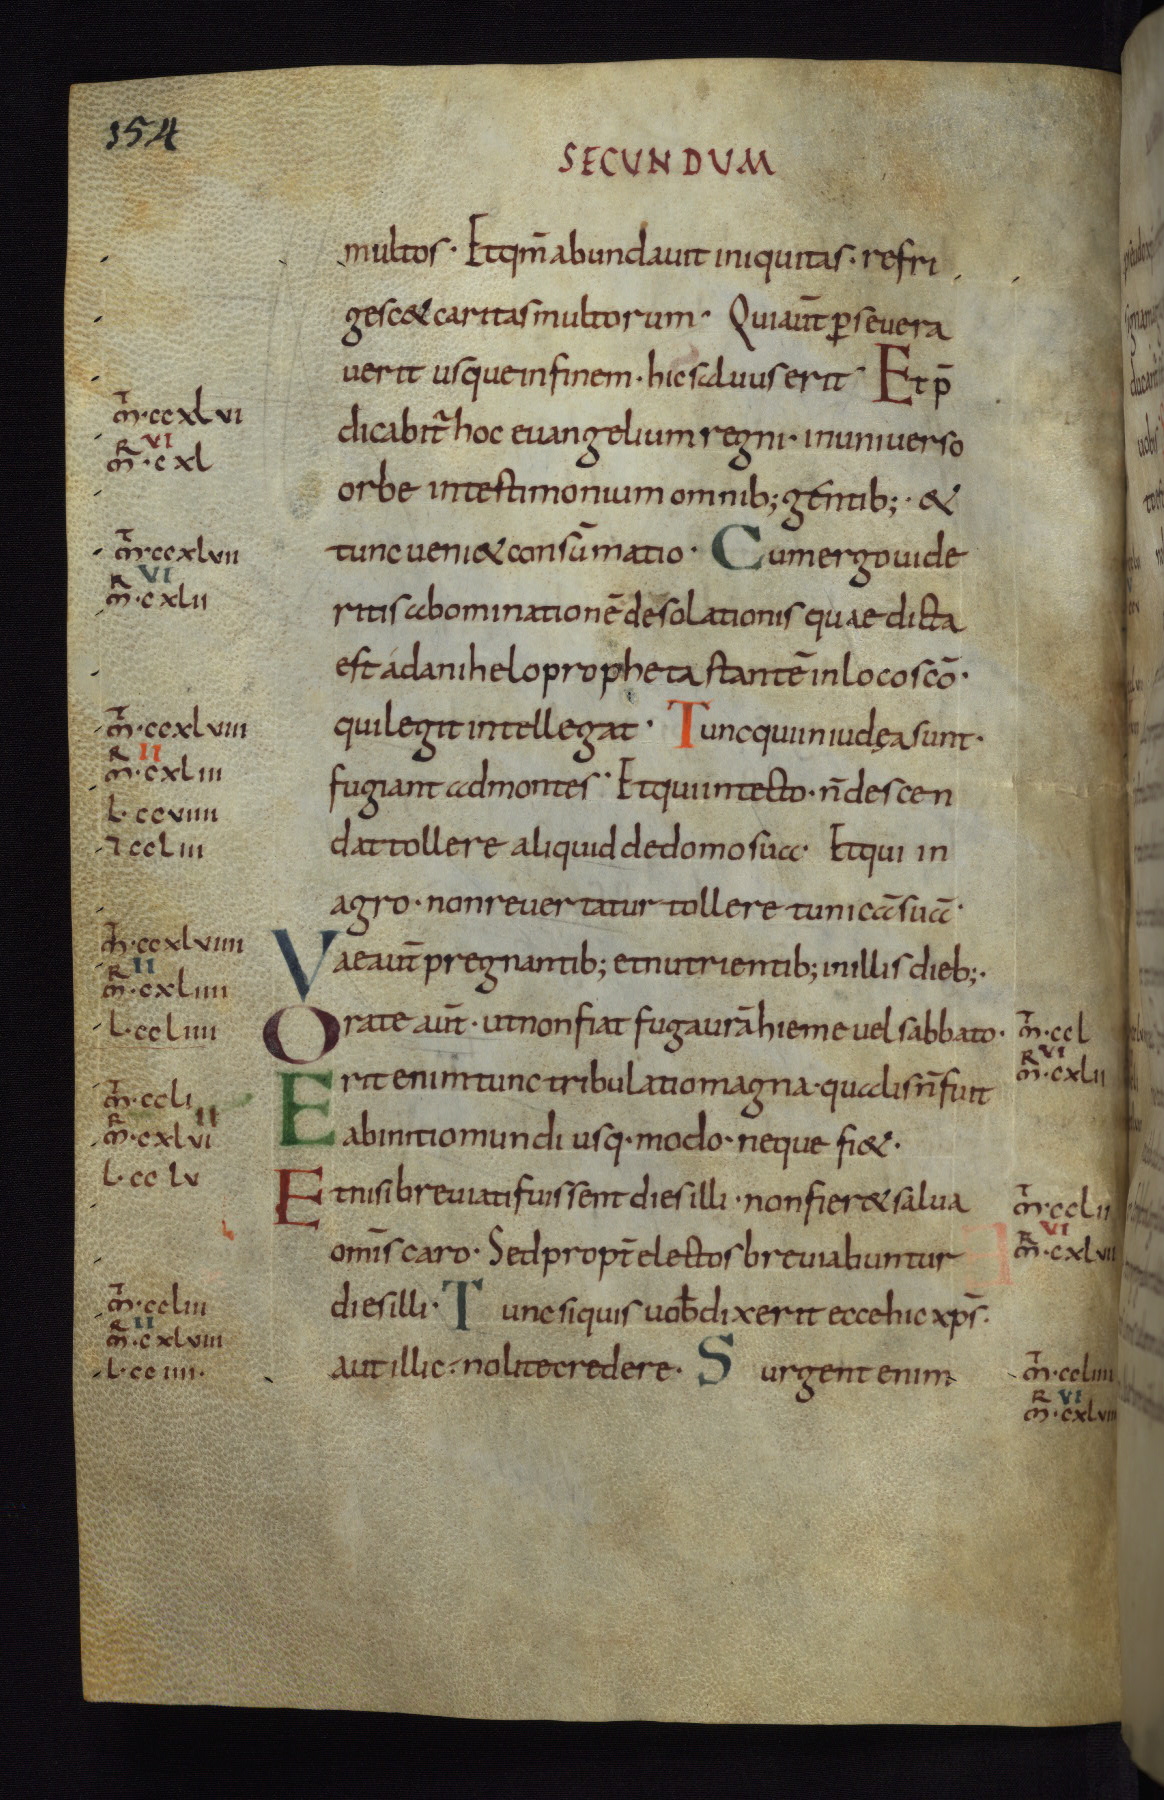 154
SECUNDUM
multos · Et qm̄ abundauit iniquitas · refri
gesc& caritas multorum · Qui aut̄ p̱seuera
uerit usque in finem · hic saluus erit Et p̄
dicabit̄ hoc euangelium regni · in uniuerso
orbe in testimonium omnib; gentib; · &
tunc ueni& consūmatio · Cum ergo uide
ritis abominationē desolationis quae dicta
est á danihelo propheta stantē in loco scō ·
qui legit intellegat · Tunc qui in iudęa sunt ·
fugiant ad montes · Et qui in tecto · n̄ descen
dat tollere aliquid de domo sua · Et qui in
agro · non reuertatur tollere tunicā suā ·
Vae aut̄ pregnantib; et nutrientib; in illis dieb; ·
Orate aut̄ · ut non fiat fuga urā hieme uel sabbato ·
Erit enim tunc tribulatio magna · qualis n̄ fuit
ab initio mundi usq · modo · neque fi& ·
Et nisi breuiati fuissent dies illi · non fier& salua
omīs caro · Sed propt̄ electos breuiabuntur
dies illi · Tunc si quis uob̄ dixerit ecce hic xp̄s ·
aut illic · nolite credere · Surgent enim
m̄t · ccxlvi
VI
m̄r · cxl
m̄t · ccxlvii
VI
m̄r · cxlii
m̄t · ccxlviii
II
m̄r · cxliii
L · ccviiii
ccliii
m̄t · ccxlviiii
II
m̄r · cxliiii
L · ccliiii
m̄t · ccli
II
m̄r · cxlvi
L · cclv
m̄t · ccliii
II
m̄r · cxlviii
L · cciiii ·
m̄t · ccl
VI
m̄r · cxlii
m̄t · cclii
VI
m̄r · cxlvii
m̄t · ccliiii
VI
m̄r · cxlviii